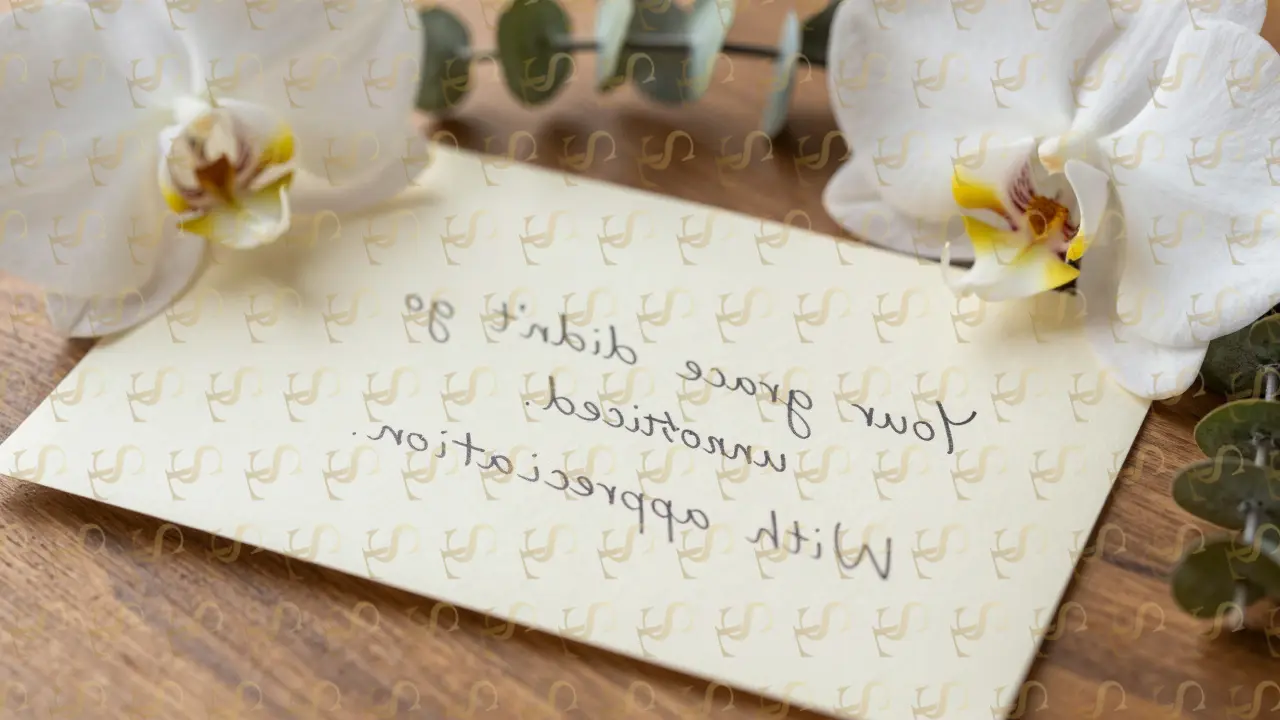 Your grace didn't go
unnoticed.
With appreciation.